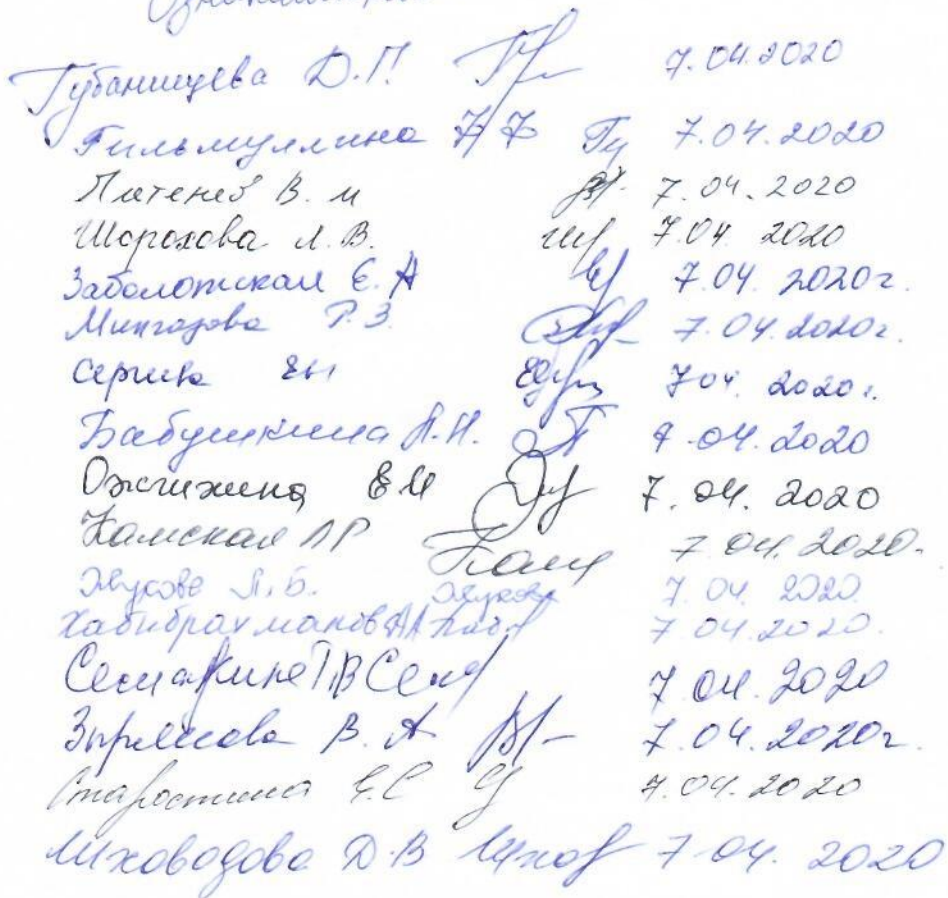 Губанищева Д.П. 7.04.2020
Гильмуллина 7.04.2020
Патенев В. М 7.04.2020
Шорохова Л.В. 7.04 2020
Заболотская Е. А 7.04. 2020г.
Мингазова Р.З. 7.04.2020г.
Сергина ЕН 704. 2020г.
Бабушкина А.Н. 7.04.2020
Ожгихина ЕИ 7.04. 2020
Камская ЛР 7 04.2020.
Жукова Л.Б. Жукова 7.04. 2020
Хабибрахманов АА Хаб 7.04.2020.
Семакина ТВ Сем 7.04.2020
Зырянова В. А 7.04.2020г.
Старостина Е.С 7.04.2020
Лиховодова Д.В Лихов 7.04. 2020